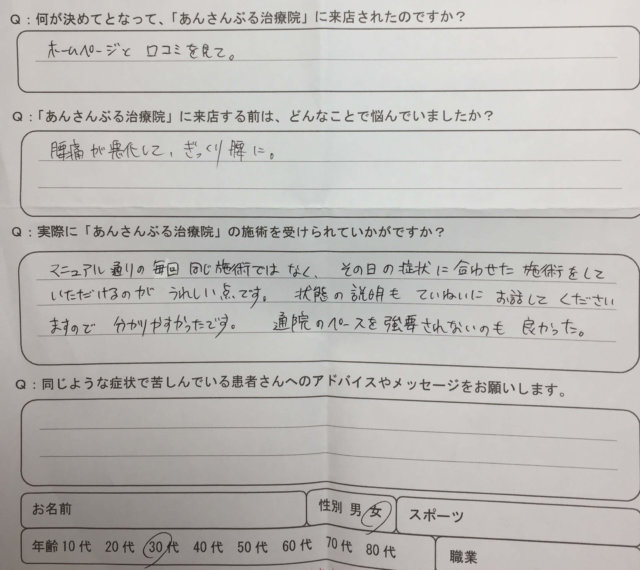 Q：何が決めてとなって、「あんさんぶる治療院」に来店されたのですか？
ホームページと 口コミを見て。
Q：「あんさんぶる治療院」に来店する前は、どんなことで悩んでいましたか？
腰痛が悪化して、ぎっくり腰に。
Q：実際に「あんさんぶる治療院」の施術を受けられていかがですか？
マニュアル通りの毎回同じ施術ではなく、その日の症状に合わせた施術をして
いただけるのがうれしい点です。状態の説明もていねいにお話してください
ますので 分かりやすかったです。通院のペースを強要されないのも良かった。
Q：同じような症状で苦しんでいる患者さんへのアドバイスやメッセージをお願いします。
お名前 性別 男 女 スポーツ
年齢 10代 20代 30代 40代 50代 60代 70代 80代 職業